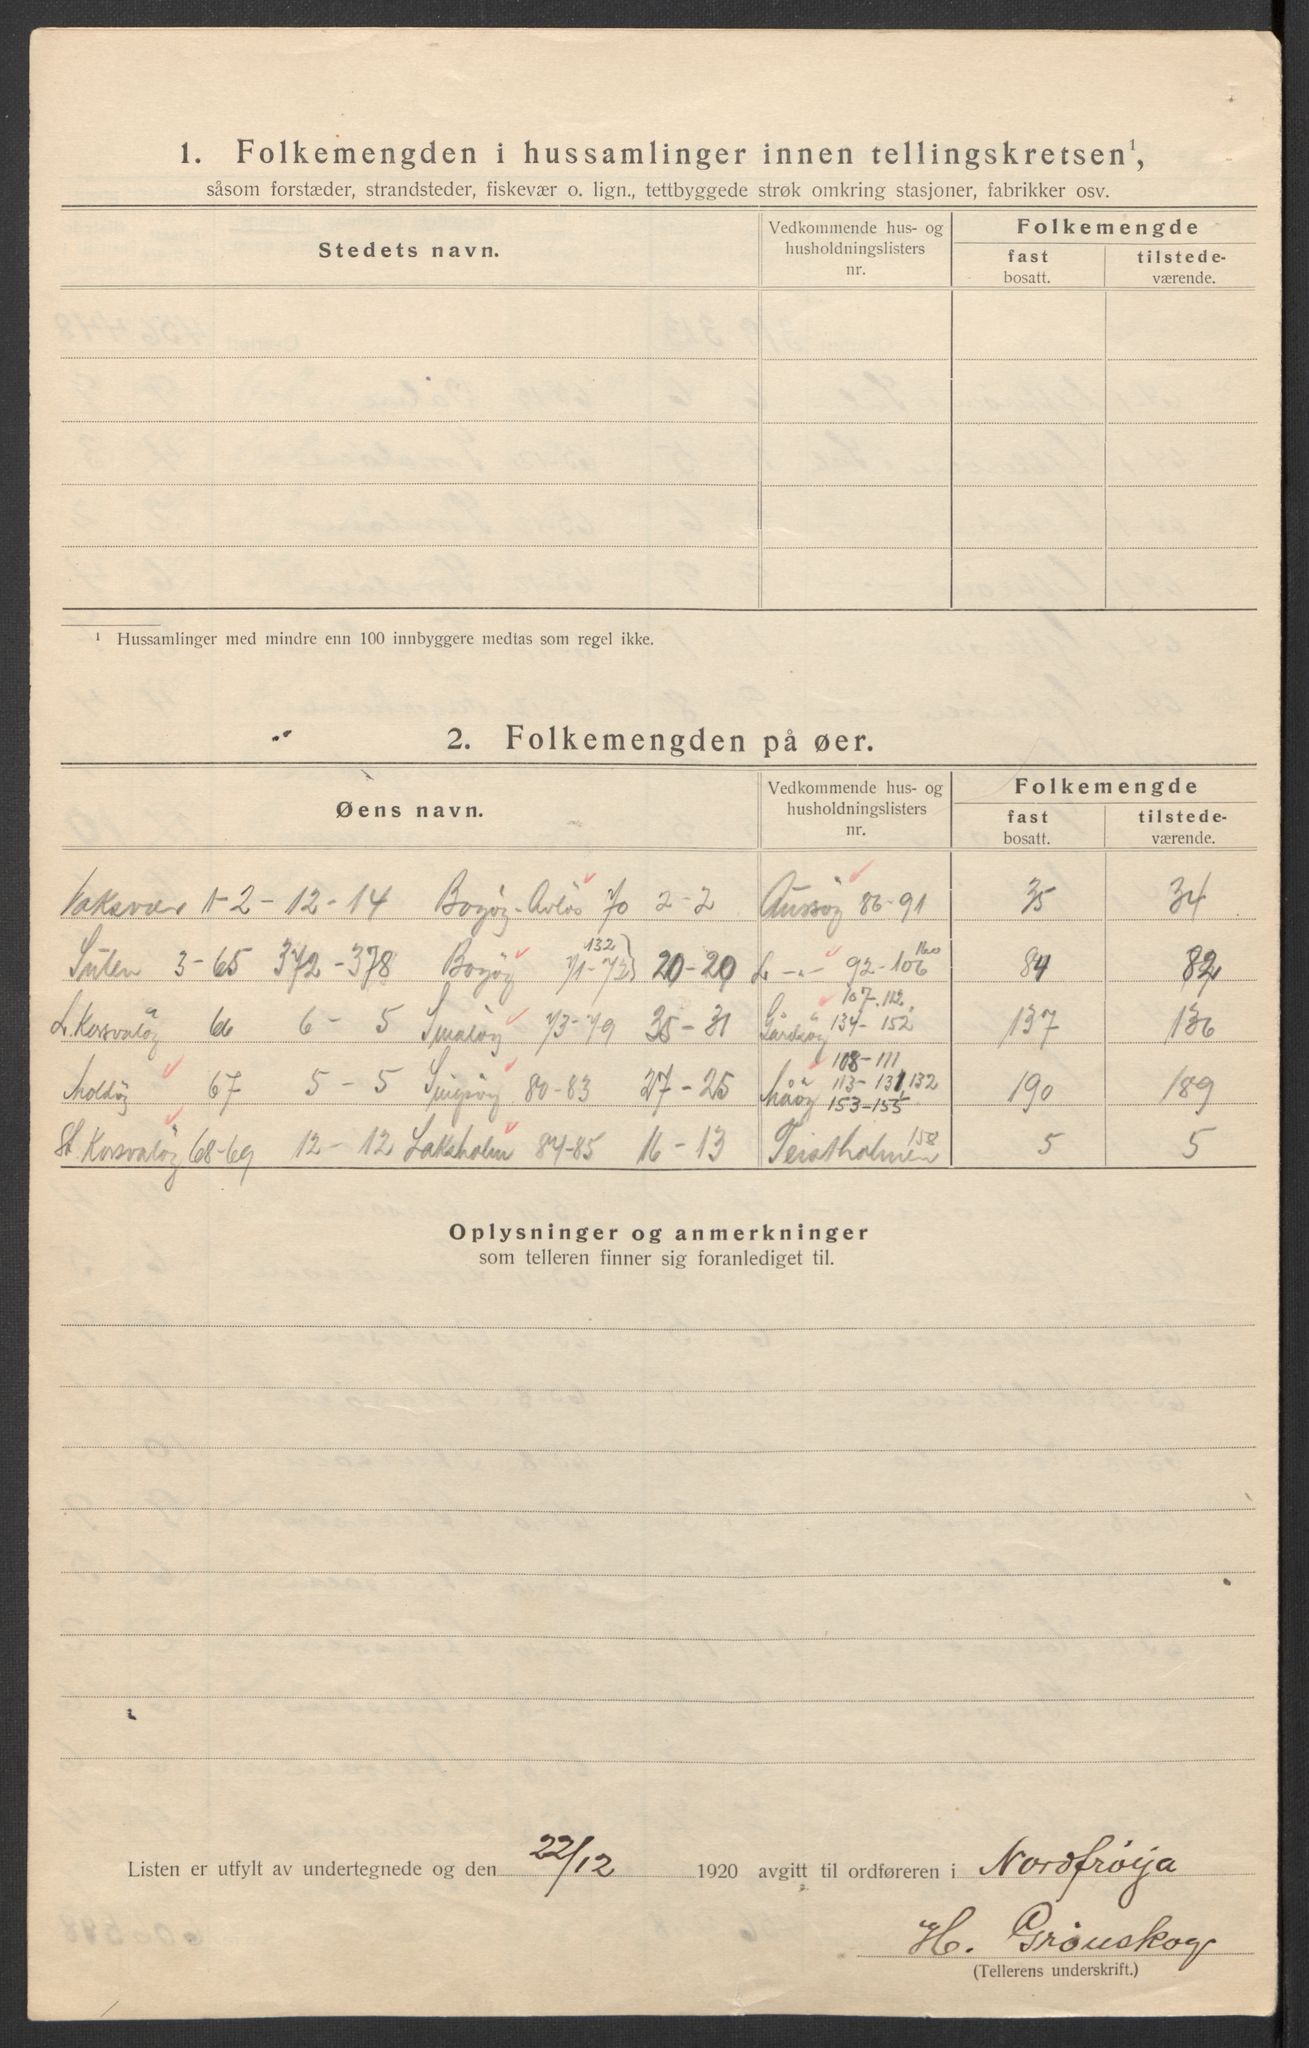 1. Folkemengden i hussamlinger innen tellingskretsen¹,
såsom forstæder, strandsteder, fiskevær o. lign., tettbyggede strøk omkring stasjoner, fabrikker osv.
Stedets navn.
Vedkommende hus- og husholdningslisters nr.
Folkemengde
fast bosatt.
tilstede- værende.
¹ Hussamlinger med mindre enn 100 innbyggere medtas som regel ikke.
2. Folkemengden på øer.
Øens navn.
Vedkommende hus- og husholdningslisters nr.
Folkemengde
fast bosatt.
tilstede- værende.
Vaksvær 1-2 - 12-14 Bogøy 70 2-2 86-91 35 34
Sulen 3-65 372-378 Bogøy 71-72 132 20-20 L. -"- 92-106 160 84 82
L. Korsvaløy 66 6-5 Småløy 73-79 35-31 Gårdsøy 107, 112, 134-152 137 136
Moldøy 67 5-5 80-83 27-25 Måøy 108-111 113-131, 132 153-155 190 189
St. Korsvaløy 68-69 12-12 Laksholm 84-85 16-13 Teistholmen 158 5 5
Oplysninger og anmerkninger
som telleren finner sig foranlediget til.
Listen er utfylt av undertegnede og den 22/12 1920 avgitt til ordføreren i Nordfrøya
H. Grønskog
(Tellerens underskrift.)